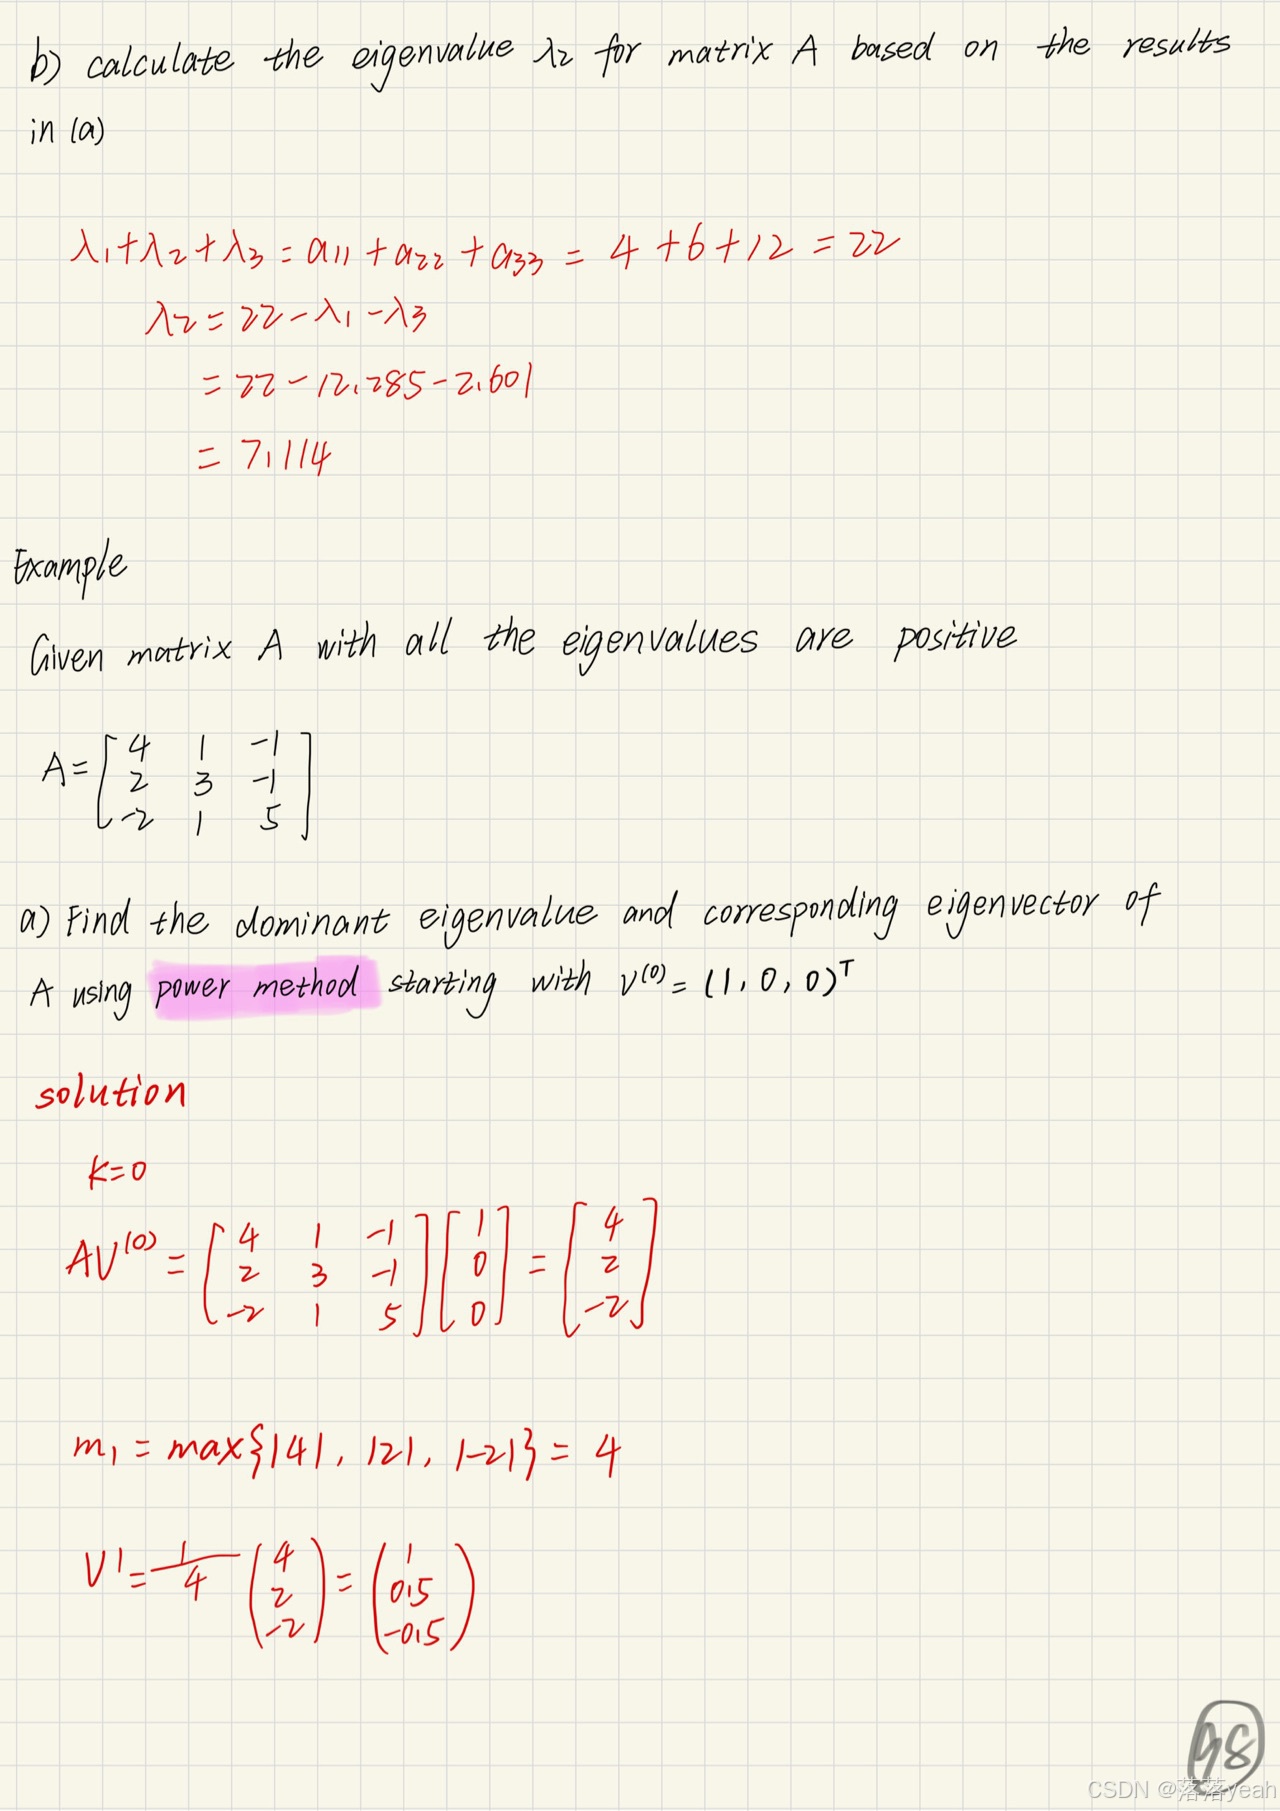 b) calculate the eigenvalue λ2 for matrix A based on the results
in (a)
λ1+λ2+λ3 = a11 + a22 + a33 = 4 + 6 + 12 = 22
λ2 = 22 - λ1 - λ3
= 22 - 12.285 - 2.601
= 7.114
Example
Given matrix A with all the eigenvalues are positive
A = [4 1 -1
2 3 -1
-2 1 5]
a) Find the dominant eigenvalue and corresponding eigenvector of
A using power method starting with v(0) = (1, 0, 0)T
solution
k=0
AV(0) = [4 1 -1] [1] = [4]
[2 3 -1] [0] [2]
[-2 1 5] [0] [-2]
m1 = max{|4|, |2|, |-2|} = 4
V1 = 1/4 (4 2 -2) = (1 0.5 -0.5)
98
CSDN @落落yeah